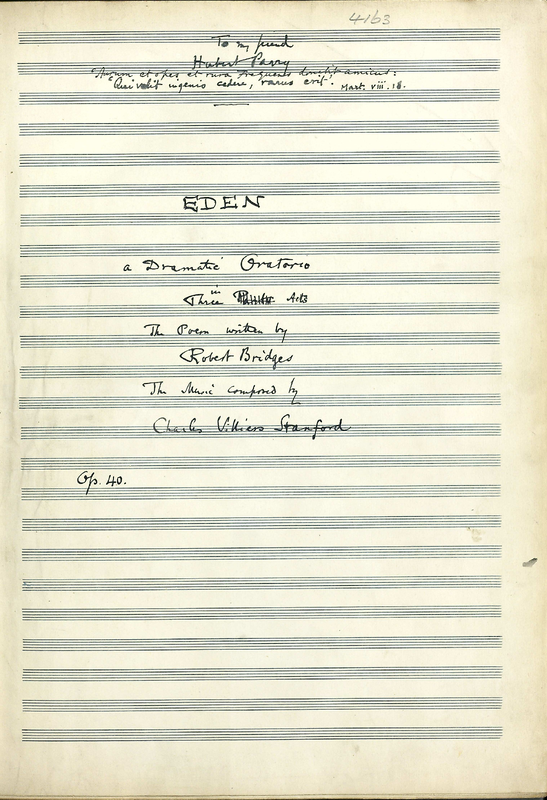 4163
To my friend
Hubert Parry
'Aurum et opes et rura frequens donabit amicus:
Qui velit ingenio cedere, rarus erit'. Mart. viii. 18.
EDEN
a Dramatic Oratorio
in
Three Acts
The Poem written by
Robert Bridges
The Music composed by
Charles Villiers Stanford
Op. 40.